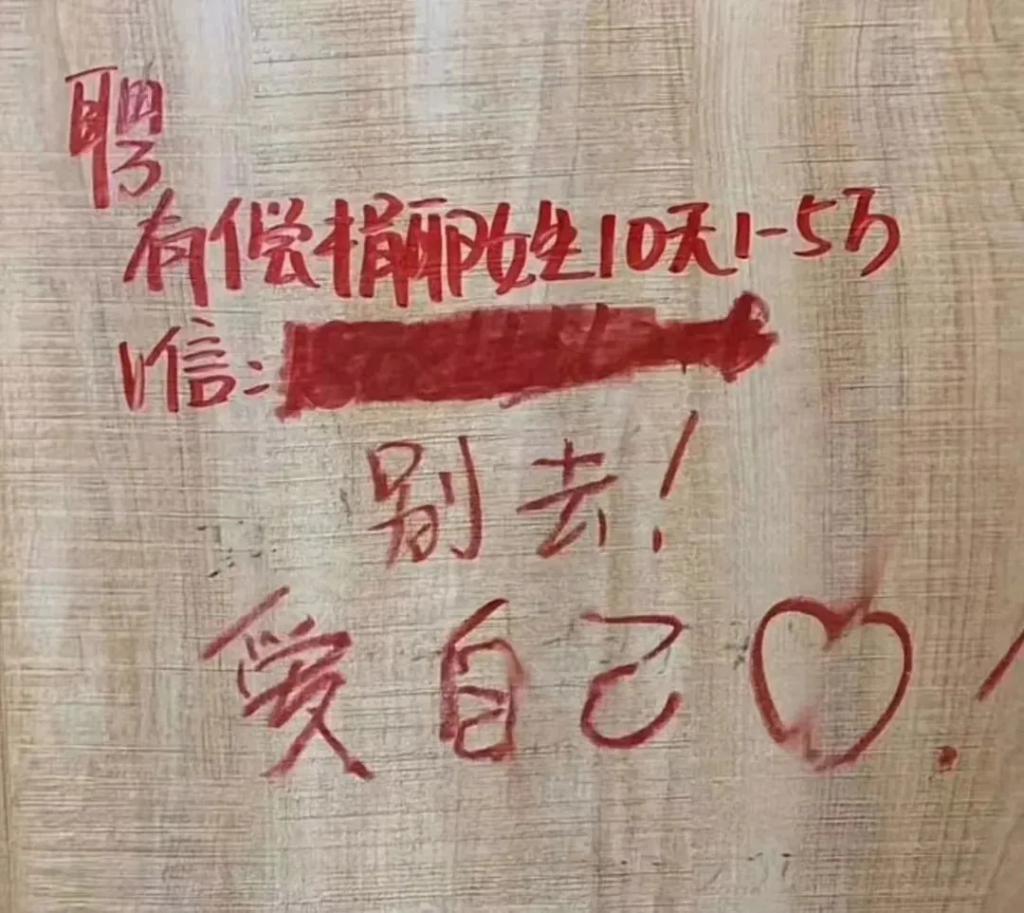 聘
有偿捐卵女生10天1-5万
V信:
别去!
爱自己♡!